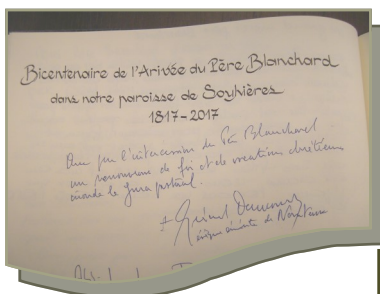 Bicentenaire de l'Arivée du Père Blanchard
dans notre paroisse de Soyhières
1817-2017
Que par l'intercession du Père Blanchard
un renouveau de foi et de vocations chrétiennes
inonde le Jura pastoral.
+
évêque de